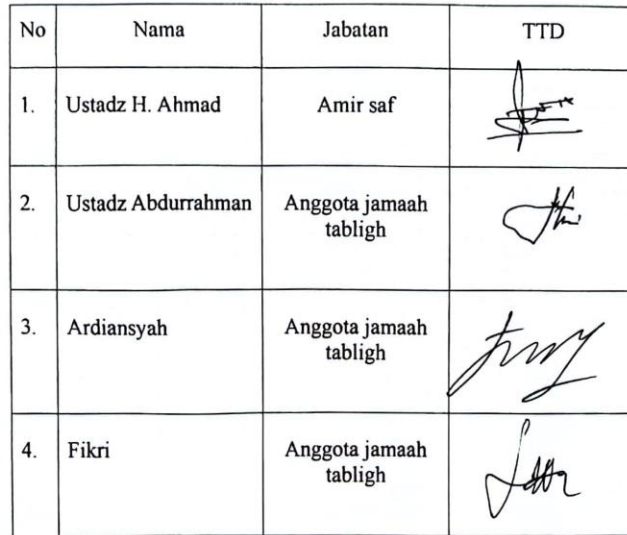 No Nama Jabatan TTD
1. Ustadz H. Ahmad Amir saf
2. Ustadz Abdurrahman Anggota jamaah
tabligh
3. Ardiansyah Anggota jamaah
tabligh
4. Fikri Anggota jamaah
tabligh